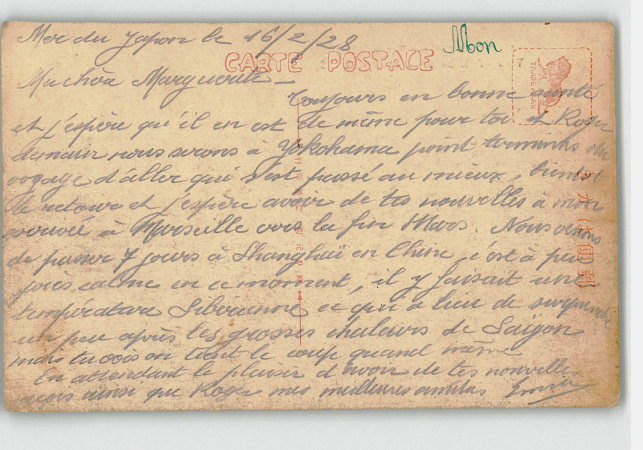 Mer du Japon le 16/2/28
Mon
CARTE POSTALE
Ma chère Marguerite —
Toujours en bonne santé
et j'espère qu'il en est de même pour toi et Roger
demain nous serons à Yokohama point terminus du
voyage d'aller qui s'est passé au mieux, bientôt
le retour et j'espère avoir de tes nouvelles à mon
arrivée à Marseille vers la fin Mars. Nous venons
de passer 7 jours à Shanghaï en Chine, c'est à peu
près calme en ce moment, il y faisait une
température Sibérienne ce qui a lieu de surprendre
un peu après les grosses chaleurs de Saïgon
mais tu vois on tient le coup quand même
En attendant le plaisir d'avoir de tes nouvelles
reçois ainsi que Roger mes meilleures amitiés